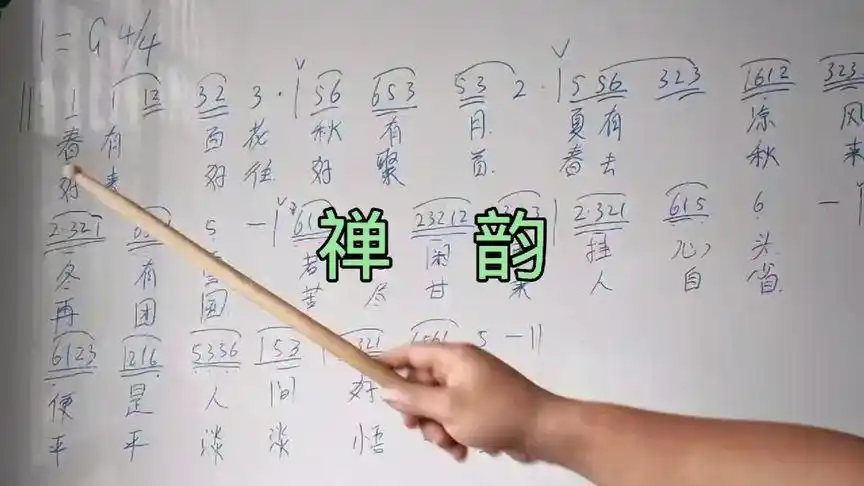 1=G 4/4
‖ 1 1 12 32 3·| 56 653 53 2·| 5 56 323 1612 323
春 有 百 花 秋 有 月 夏 有 凉 风
好 来 好 往 好 聚 首 春 去 秋 来
2·321 5 -| 61 23212 | 2·321 615 6 -‖
冬 有 若 闲 挂 心 头
再 团 圆 苦 尽 甘 来 人 自 省
6123 1216 5356 153 | 321 1561 5 -‖
便 是 人 间 好
平 平 淡 淡 悟
禅 韵